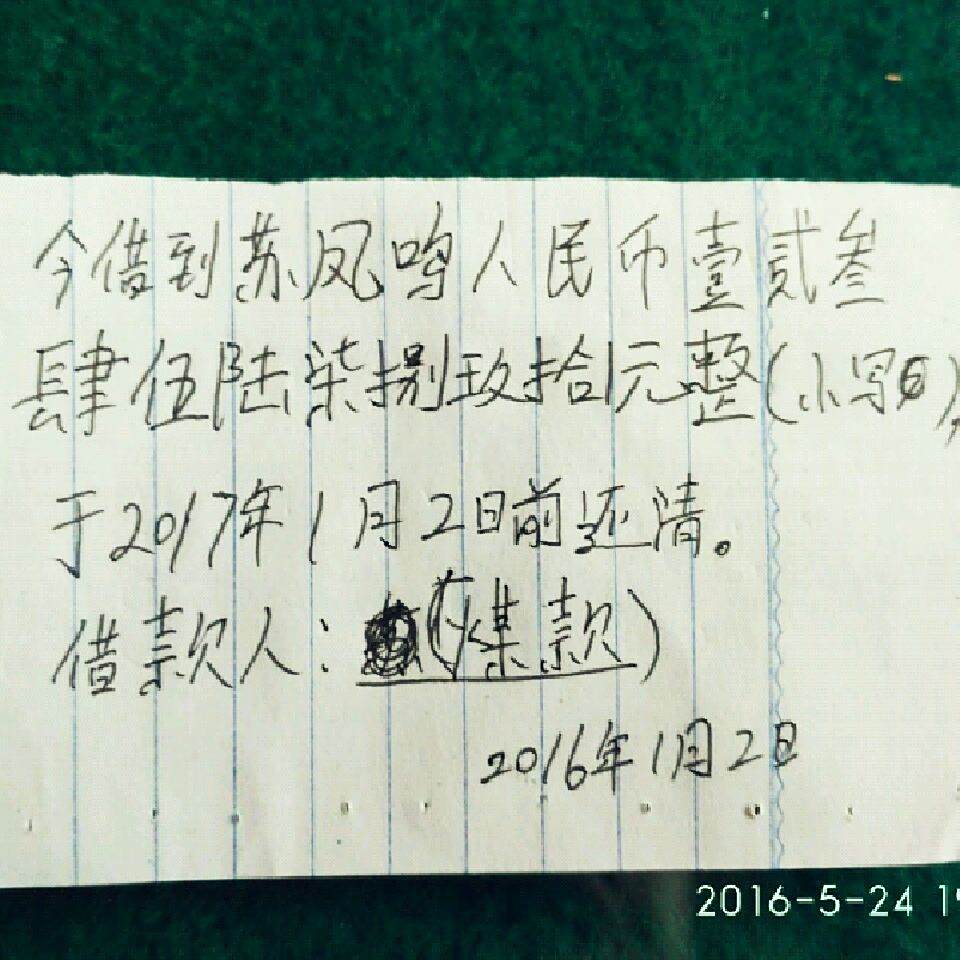 今借到苏凤鸣人民币壹贰叁
肆伍陆柒捌玖拾元整(小写目),
于2017年1月2日前还清。
借款人:(煤款)
2016年1月2日
2016-5-24 19